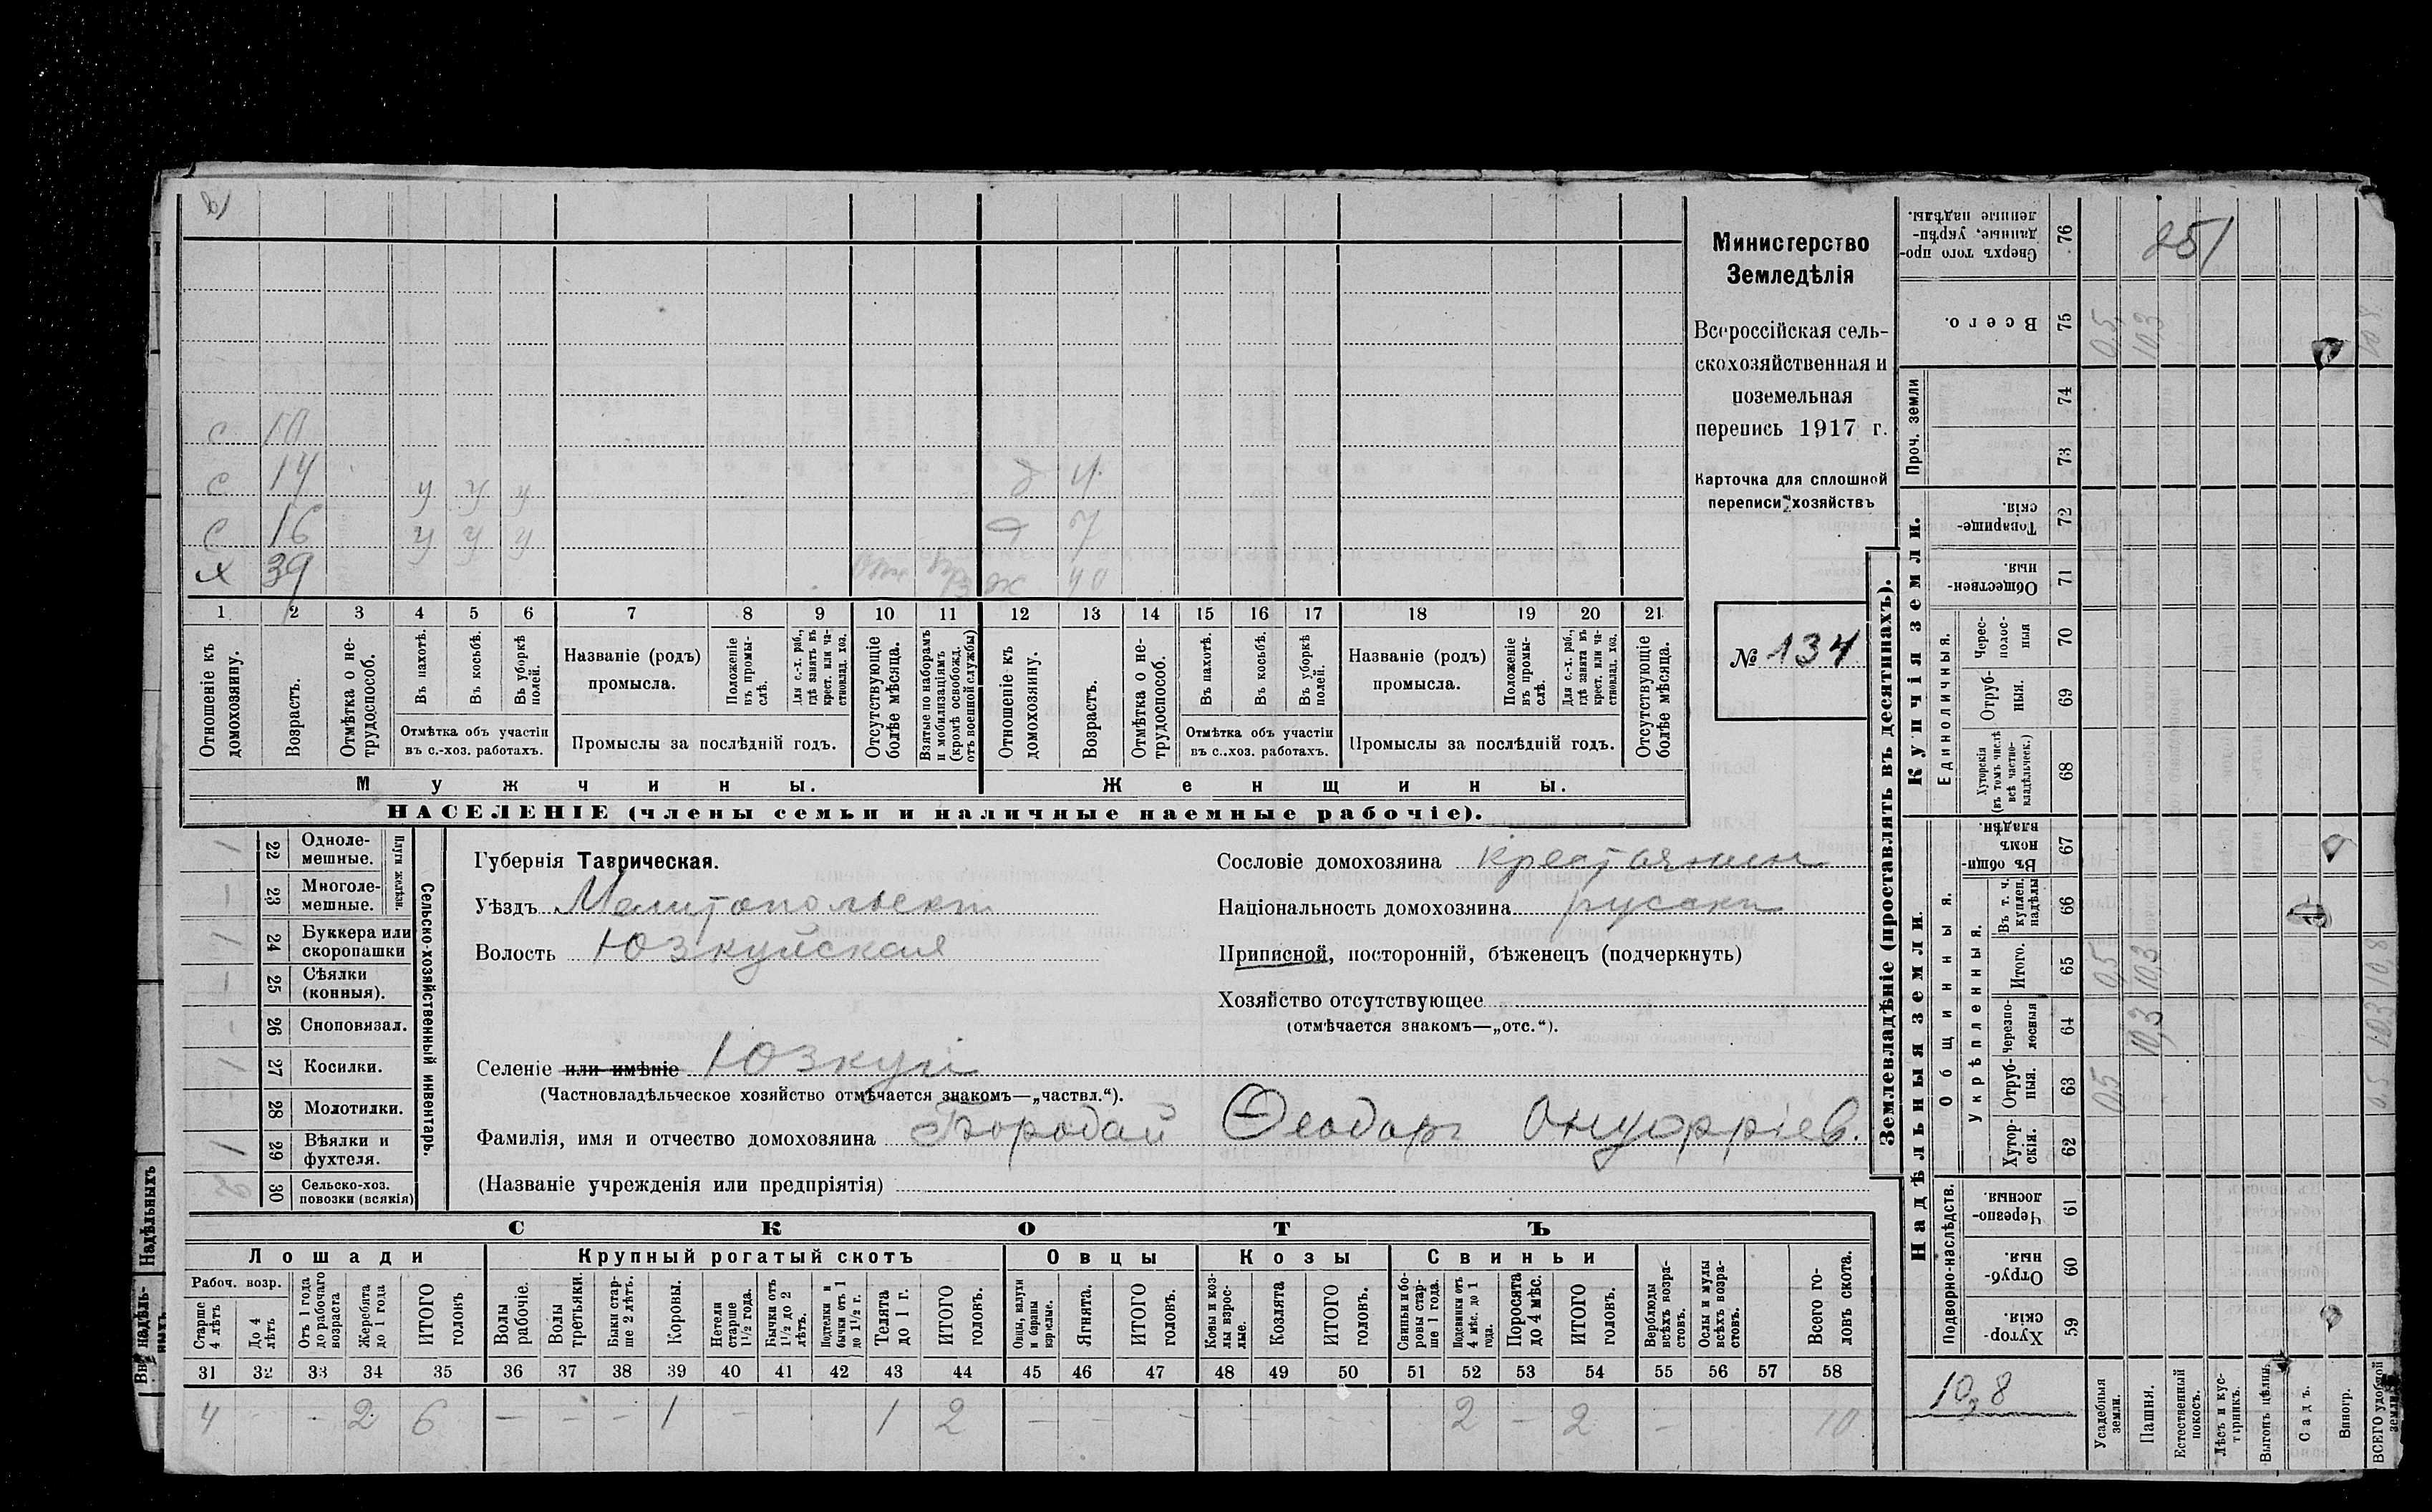 с 10
с 14 у у у д 4
с 16 у у у д 7
х 39 ж 40
1 2 3 4 5 6 7 8 9 10 11 12 13 14 15 16 17 18 19 20 21
Отношеніе къ домохозяину.
Возрастъ.
Отмѣтка о не-трудоспособ.
Въ пахотѣ.
Въ косьбѣ.
Въ уборкѣ полей.
Отмѣтка объ участіи
въ с.-хоз. работахъ.
Названіе (родъ)
промысла.
Положеніе въ промы-слѣ.
Для с.-х. раб., гдѣ занятъ въ крест. или ча-стновлад. хоз.
Промыслы за послѣдній годъ.
Отсутствующіе болѣе мѣсяца.
Взятые по наборамъ и мобилизаціямъ (кромѣ освобожд. отъ военной службы)
Отношеніе къ домохозяину.
Возрастъ.
Отмѣтка о не-трудоспособ.
Въ пахотѣ.
Въ косьбѣ.
Въ уборкѣ полей.
Отмѣтка объ участіи
въ с.-хоз. работахъ.
Названіе (родъ)
промысла.
Положеніе въ промы-слѣ.
Для с.-х. раб., гдѣ занята въ крест. или ча-стновлад. хоз.
Промыслы за послѣдній годъ.
Отсутствующіе болѣе мѣсяца.
Мужчины. Женщины.
НАСЕЛЕНІЕ (члены семьи и наличные наемные рабочіе).
Министерство
Земледѣлія
Всероссійская сель-
скохозяйственная и
поземельная
перепись 1917 г.
Карточка для сплошной
переписи хозяйствъ
№ 134
1 22 Одноле-мешные.
— 23 Многоле-мешные.
Плуги желѣзн.
1 24 Буккера или скоропашки
— 25 Сѣялки (конныя).
- 26 Сноповязал.
1 27 Косилки.
- 28 Молотилки.
1 29 Вѣялки и фухтеля.
2 30 Сельско-хоз. повозки (всякія)
Сельско-хозяйственный инвентарь.
Губернія Таврическая.
Уѣздъ Мелитопольскій
Волость Юзкуйская
Сословіе домохозяина крестьянин
Національность домохозяина русскій
Приписной, посторонній, бѣженецъ (подчеркнуть)
Хозяйство отсутствующее
(отмѣчается знакомъ—„отс.“).
Селеніе или имѣніе Юзкуи
(Частновладѣльческое хозяйство отмѣчается знакомъ—„частвл.“).
Фамилія, имя и отчество домохозяина Бородай Ѳеодоръ Онуфріев.
(Названіе учрежденія или предпріятія)
СКОТЪ
Лошади Крупный рогатый скотъ Овцы Козы Свиньи
Рабоч. возр.
Старше 4 лѣтъ
До 4 лѣтъ
Отъ 1 года до рабочаго возраста
Жеребята до 1 года
ИТОГО головъ
Волы рабочіе.
Волы третьяки.
Быки стар-ше 2 лѣтъ.
Коровы.
Нетели старше 1½ года.
Бычки отъ 1½ до 2 лѣтъ.
Подтелки и бычки отъ 1 до 1½ г.
Телята до 1 г.
ИТОГО головъ.
Овцы, валухи и бараны взрослые.
Ягнята.
ИТОГО головъ.
Козы и коз-лы взрос-лые.
Козлята
ИТОГО головъ.
Свиньи и бо-ровы стар-ше 1 года.
Подсвинки отъ 4 мѣс. до 1 года.
Поросята до 4 мѣс.
ИТОГО головъ.
Верблюды всѣхъ возра-стовъ.
Ослы и мулы всѣхъ возра-стовъ.
Всего го-ловъ скота.
31 32 33 34 35 36 37 38 39 40 41 42 43 44 45 46 47 48 49 50 51 52 53 54 55 56 57 58
4 - 2 6 — - - 1 - 1 2 — — - - - - 2 - 2 - 10
Землевладѣніе (проставлять въ десятинахъ).
Сверхъ того про-данные, укрѣп-ленные надѣлы. 76 251
Всего. 75 0,5 10,3 10,8
Проч. земли 74
73
Купчія земли.
Товарище-скія. 72
Обществен-ныя. 71
Единоличныя.
Черес-полос-ныя 70
Отруб-ныя. 69
Хуторскія (въ томъ числѣ всѣ частно-владѣльческ.) 68
Надѣльныя земли.
Общинныя.
Въ общин-номъ владѣн. 67
Укрѣпленныя.
Въ т. ч. куплен. надѣлы 66
Итого. 65 0,5 10,3 10,8
Черезпо-лосныя 64 10,3 10,3
Отруб-ныя. 63 0,5 0,5
Хутор-скія. 62
Подворно-наслѣдств.
Черезпо-лосныя. 61
Отруб-ныя. 60
Хутор-скія. 59
10,8
Усадебныя земли.
Пашня.
Естественный покосъ.
Лѣсъ и кус-тарникъ.
Выгонъ цѣлин.
Садъ.
Виногр.
ВСЕГО удобной земли
Надѣльныхъ
Внѣ надѣль-ныхъ